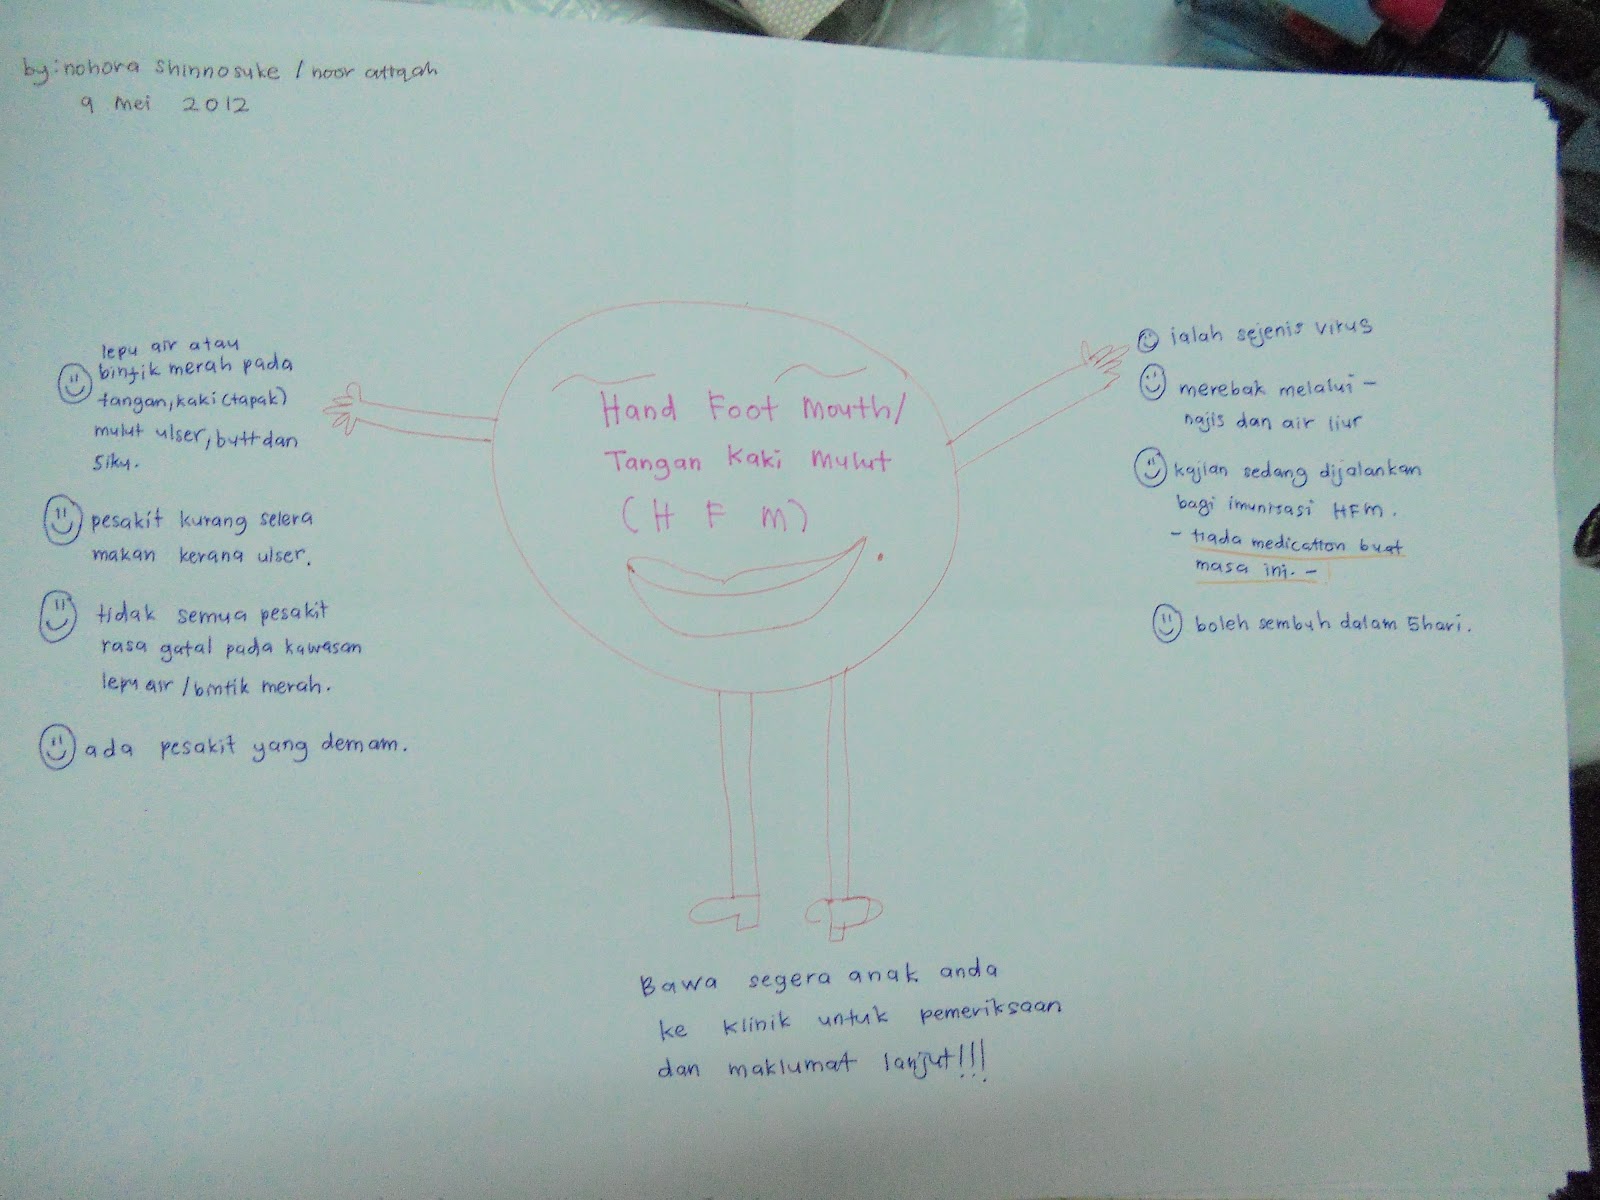 by: nohora shinnosuke / noor attqah
9 mei 2012
lepu air atau
bintik merah pada
tangan, kaki (tapak)
mulut ulser, butt dan
siku.
pesakit kurang selera
makan kerana ulser.
tidak semua pesakit
rasa gatal pada kawasan
lepu air / bintik merah.
ada pesakit yang demam.
Hand Foot Mouth/
Tangan Kaki Mulut
(H F M)
ialah sejenis virus
merebak melalui -
najis dan air liur
kajian sedang dijalankan
bagi imunisasi HFM.
- tiada medication buat
masa ini. -
boleh sembuh dalam 5 hari.
Bawa segera anak anda
ke klinik untuk pemeriksaan
dan maklumat lanjut!!!